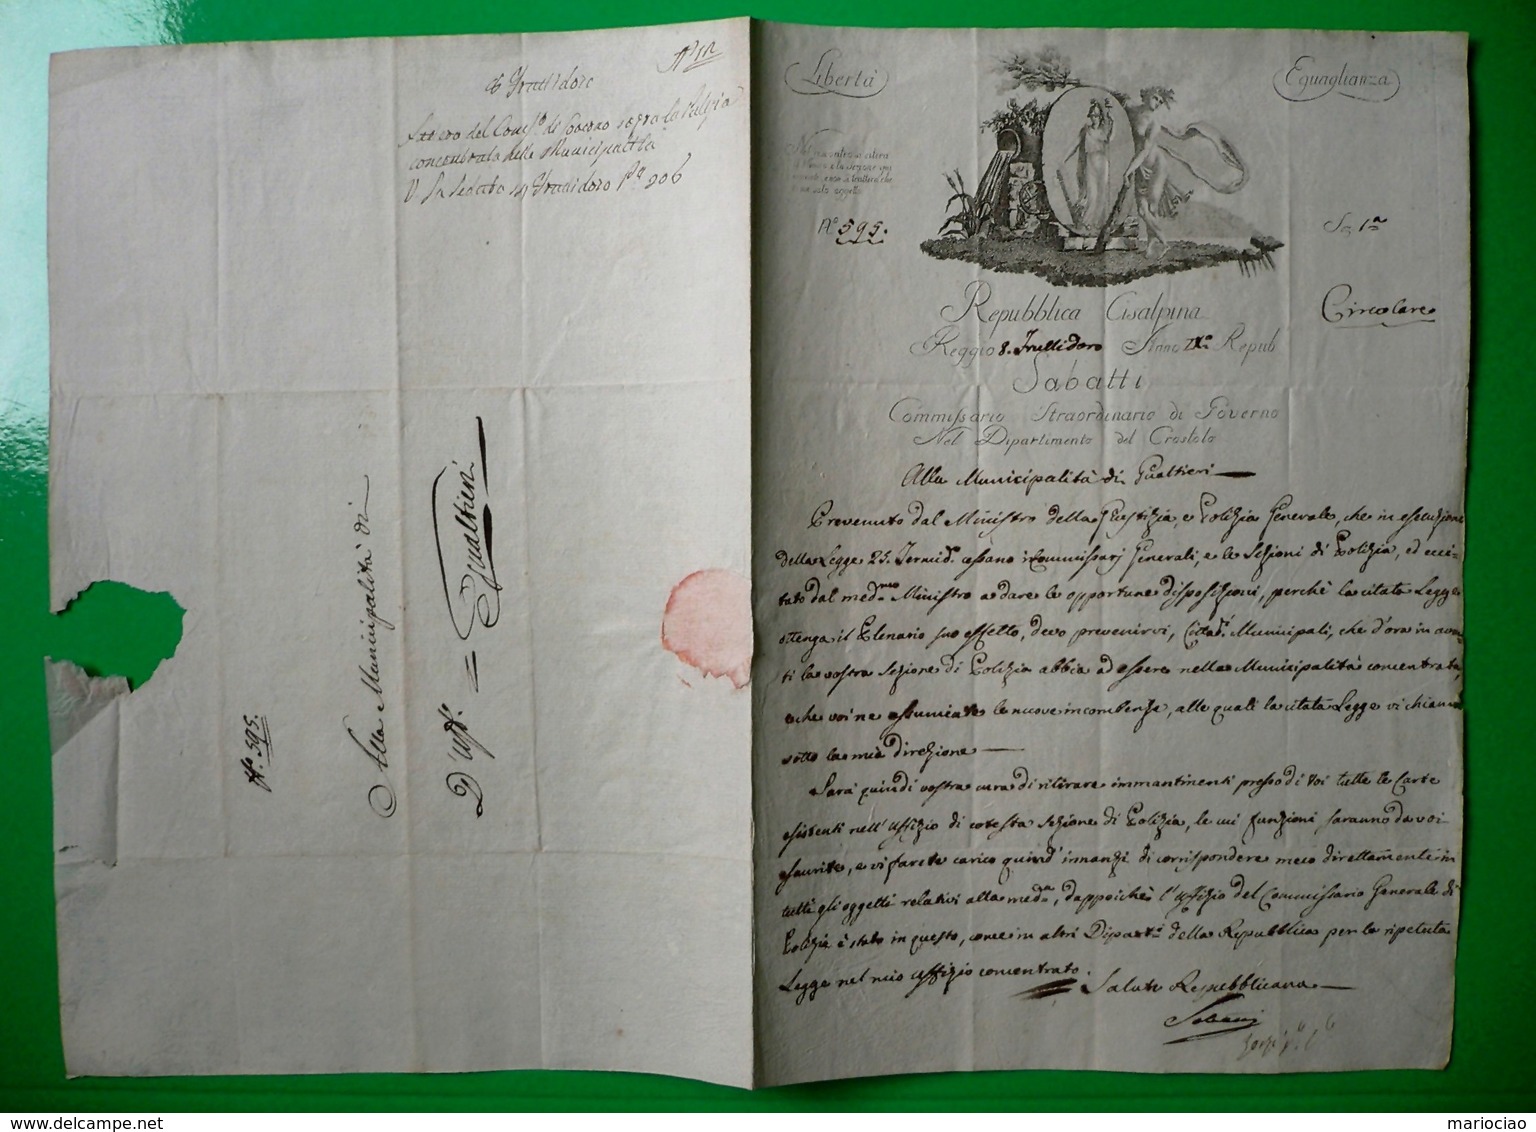 Libertà
Eguaglianza
N.° 595.
Sez. 1.a
Circolare
Repubblica Cisalpina
Reggio 8. Fruttidoro Anno IX.o Repub
Sabatti
Commissario Straordinario di Governo
Nel Dipartimento del Crostolo
Alla Municipalità di Gualtieri
Prevenuto dal Ministro della Giustizia e Polizia Generale, che in esecuzione
della Legge 25. Termid. cessano i Commissarj Generali, e le Sezioni di Polizia, ed ecci-
tato dal med.mo Ministro a dare le opportune disposizioni, perchè la citata Legge
ottenga il plenario suo effetto, devo prevenirvi, Cittad.i Municipali, che d'ora in avan-
ti la vostra Sezione di Polizia abbia ad essere nella Municipalità concentrata,
e che voi ne assumiate le nuove incombenze, alle quali la citata Legge vi chiama
sotto la mia direzione
Sarà quindi vostra cura di ritirare immantinenti presso di voi tutte le Carte
esistenti nell'Uffizio di cotesta Sezione di Polizia, le cui funzioni saranno da voi
esaurite, e vi farete carico quind'innanzi di corrispondere meco direttamente in
tutti gli oggetti relativi alla med.a, dappoichè l'Uffizio del Commissario Generale di
Polizia è stato in questo, come in altri Dipart.i della Repubblica per la ripetuta
Legge nel mio uffizio concentrato.
Salute Repubblicana
Sabatti
Fruttidoro
concentrata nelle Municipalità
14 Fruttidoro 906
N.° 595.
Alla Municipalità di
D'uff.° = Gualtieri
mariociao